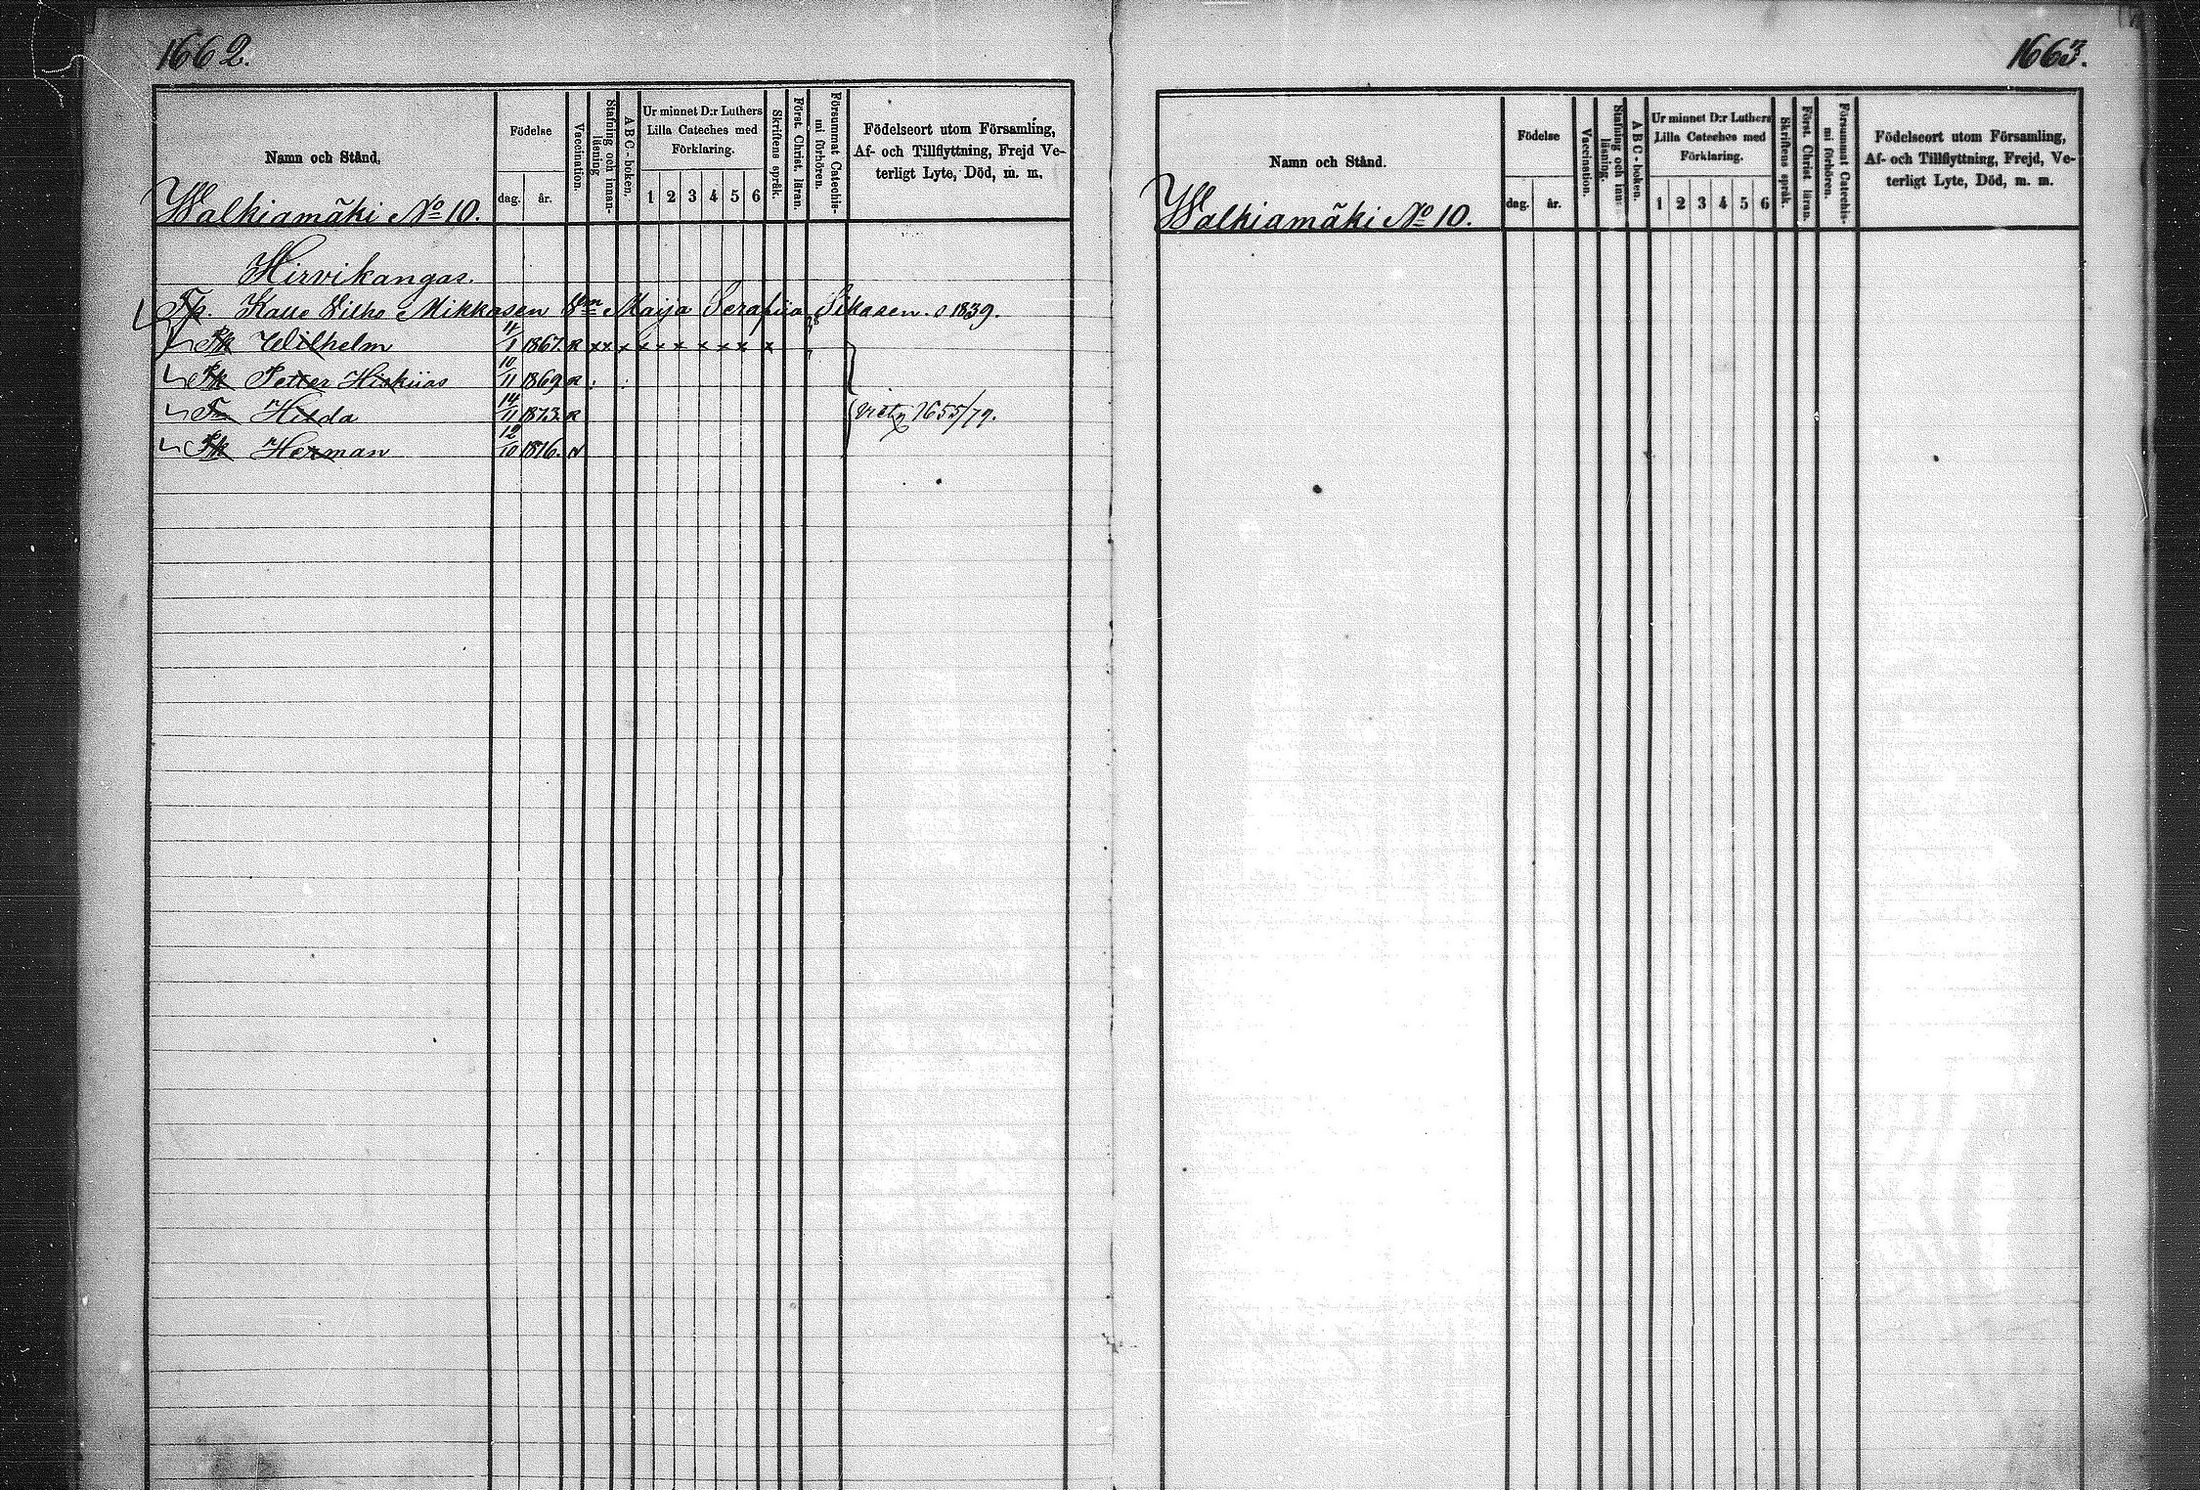 1662.
Namn och Stånd.
Födelse
dag.
år.
Vaccination.
Stafning och innan-
läsning
ABC-boken.
Ur minnet D:r Luthers
Lilla Cateches med
Förklaring.
1 2 3 4 5 6
Skriftens språk.
Först. Christ. läran.
Försummat Catechis-
mi förhören.
Födelseort utom Församling,
Af- och Tillflyttning, Frejd Ve-
terligt Lyte, Död, m. m.
Walkiamäki No 10.
Hirvikangas.
Kalle Vilho Mikkosen Maija Serafiia Sikasen. 1839.
Wilhelm 4/1 1867. R x x x x x x x x x x
Petter Hiskiias 10/11 1869 R
Hilda 14/11 1873. R 1655/79.
Herman 12/10 1876.
1663.
Namn och Stånd.
Födelse
dag.
år.
Vaccination.
Stafning och innan-
läsning.
ABC-boken.
Ur minnet D:r Luthers
Lilla Cateches med
Förklaring.
1 2 3 4 5 6
Skriftens språk.
Först. Christ läran.
Försummat Catechis-
mi förhören.
Födelseort utom Församling,
Af- och Tillflyttning, Frejd, Ve-
terligt Lyte, Död, m. m.
Walkiamäki No 10.